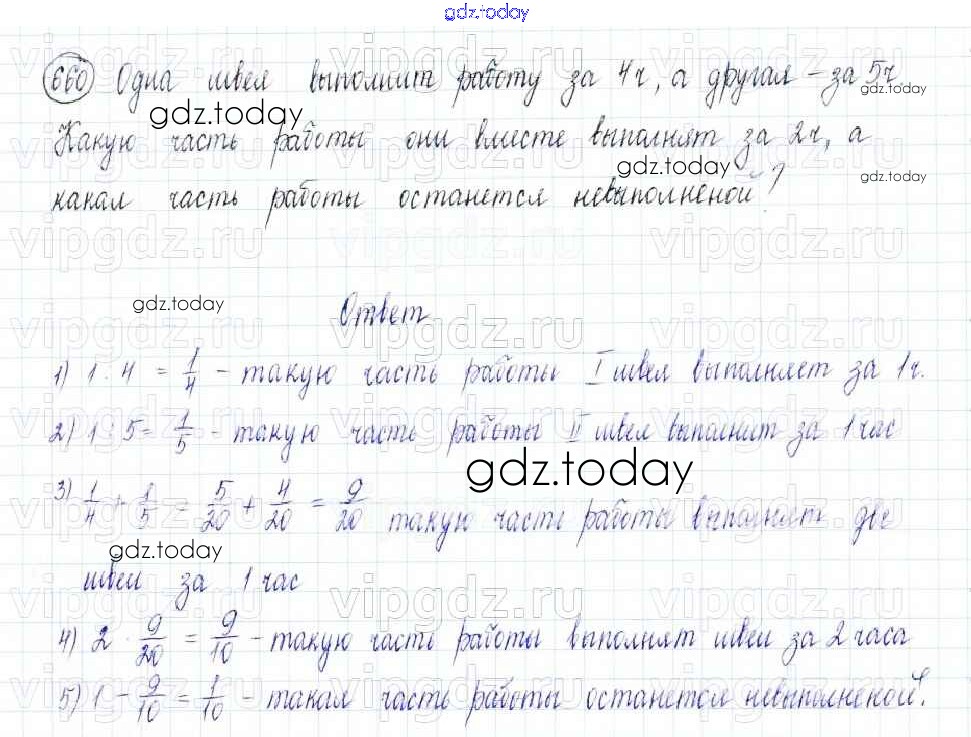 gdz.today
660 Одна швея выполнит работу за 4ч, а другая – за 5ч
gdz.today
gdz.today
Какую часть работы они вместе выполнят за 2ч, а
gdz.today
gdz.today
какая часть работы останется невыполненой?
gdz.today
Ответ
1) 1 : 4 = 1/4 – такую часть работы I швея выполняет за 1ч.
2) 1 : 5 = 1/5 – такую часть работы II швея выполнит за 1 час
gdz.today
3) 1/4 + 1/5 = 5/20 + 4/20 = 9/20 такую часть работы выполнять две
gdz.today
швеи за 1 час
4) 2 · 9/20 = 9/10 – такую часть работы выполнят швеи за 2 часа
5) 1 – 9/10 = 1/10 – такая часть работы останется невыполненой.
vipgdz.ru